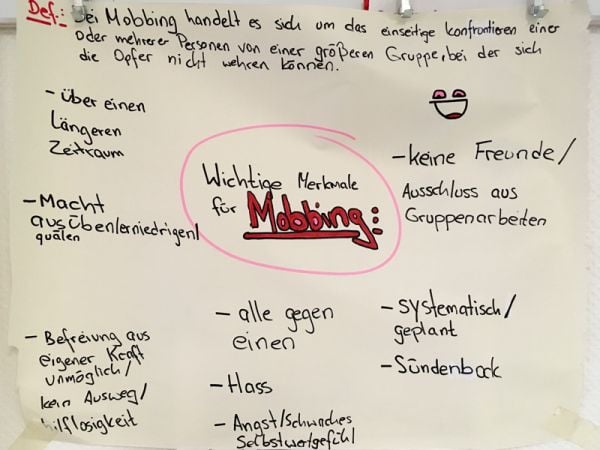 Def.: Bei Mobbing handelt es sich um das einseitige Konfrontieren einer
oder mehrerer Personen von einer größeren Gruppe, bei der sich
die Opfer nicht wehren können.
- über einen
Längeren
Zeitraum
- Macht
ausüben/erniedrigen/
quälen
- Befreiung aus
eigener Kraft
unmöglich/
kein Ausweg/
hilflosigkeit
Wichtige Merkmale
für Mobbing:
- alle gegen
einen
- Hass
- Angst/Schwaches
Selbstwertgefühl
- keine Freunde/
Ausschluss aus
Gruppenarbeiten
- systematisch/
geplant
- Sündenbock